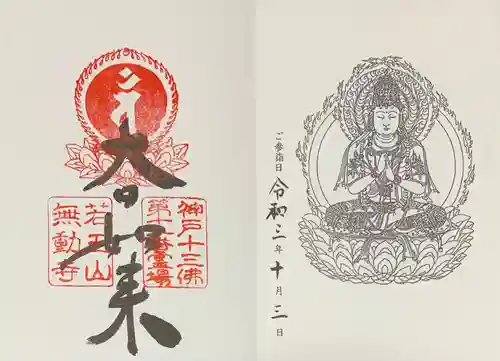 ご参詣日 令和三年十月三日
大日如来
神戸十三佛
第 番霊場
若王山
無動寺